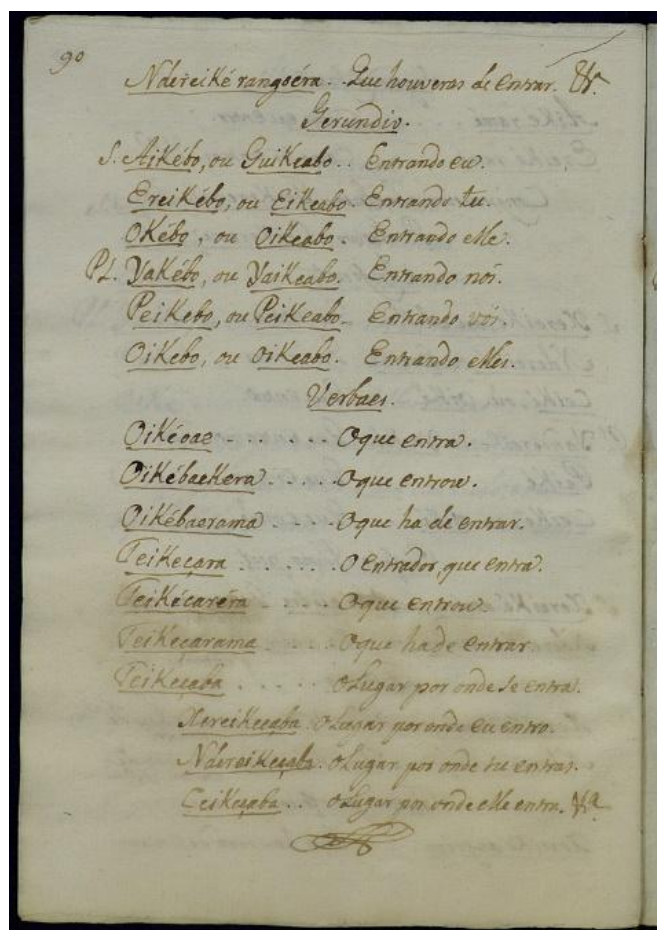 90
Ndereiké rangoéra. Que houveras de entrar. &c.
Gerundio.
S. Aikébo, ou Guikeabo.. Entrando eu.
Ereikébo, ou Eikeabo. Entrando tu.
Okébo, ou Oikeabo. Entrando elle.
Pl. Yakébo, ou Yaikeabo. Entrando nós.
Peikebo, ou Peikeabo_ Entrando vós.
Oikebo, ou Oikeabo. Entrando elles.
Verbaes.
Oikéoae - . . . - . O que entra.
Oikébaekera . . . . . O que entrou.
Oikébaerama . . . . O que ha de entrar.
Teikeçara . . . . . . O Entrador, que entra.
Teikécaréra . . . . O que entrou.
Teikeçarama . . . . O que ha de entrar.
Teikeçaba . . . . O Lugar por onde se entra.
Xereikeçaba. O Lugar por onde eu entro.
Ndereikeçaba. O Lugar por onde tu entras.
Ceikeçaba . . O Lugar por onde elle entra. &c.